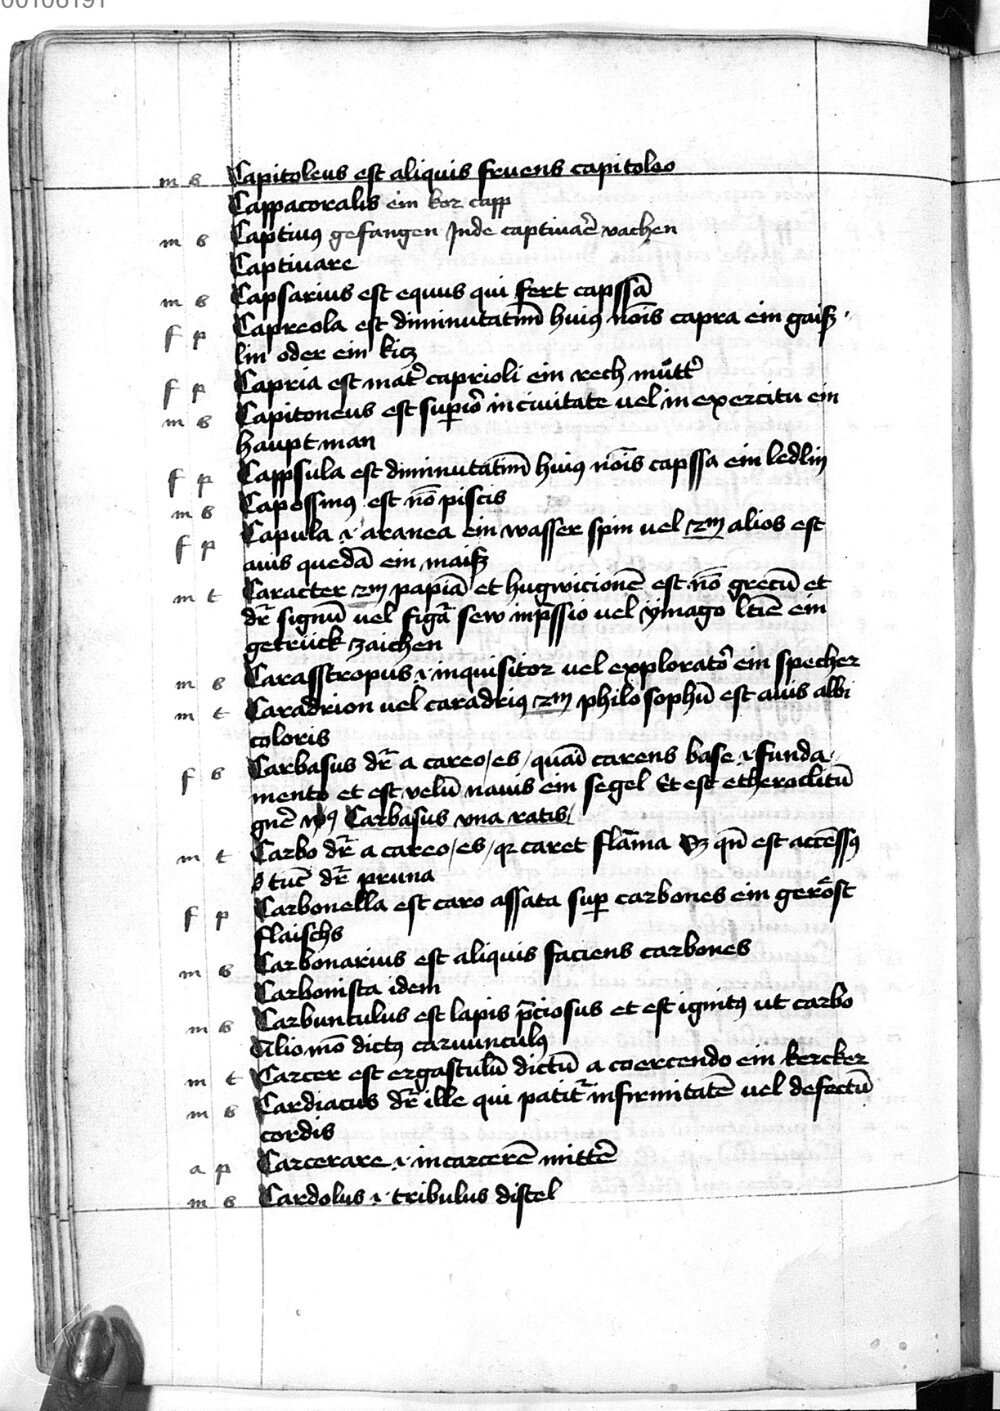 00106191
m s Capitoleus est aliquis fruens capitoleo
Cappacoralis ein kor capp
m s Captiuꝰ gefangen Inde captiuaē vachen
Captiuare
m s Capsarius est equus qui fert capssā
f p Capreola est diminutatiuū huiꝰ nōis capra ein gaisz
lin oder ein kicz
f p Capria est mat̄ caprioli ein rech můtt̄
m s Capitoneus est suꝑiōr in ciuitate uel in exercitu ein
haupt man
f p Cappsula est diminutatiuū huiꝰ nōis capssa ein ledlin
m s Capessinꝰ est nō piscis
f p Capula .i. aranea ein wasser spin uel zm alios est
auis quedā ein maisz
m t Caracter zm papiā et hugwicionē est nō grecū et
dr̄ signū uel figā sew inp̄ssio uel ÿmago ltīe ein
getruck zaichen
m s Carasstropus .i. inquisitor uel exploratōr ein specher
m t Caradrion uel caradriꝰ zm philosophū est auis albi
coloris
f s Carbasus dr̄ a careo / es / quasi carens base .i. funda
mento et est velū nauis ein segel Et est etheroclitū
gn̄e Carbasus vna ratis /
m t Carbo dr̄ a careo / es / qꝛ caret flāma Sz qn̄ est accēssꝰ
tūc dr̄ pruna
f p Carbonella est caro assata suꝑ carbones ein geröst
flaischs
m s Carbonarius est aliquis faciens carbones
Carbonista idem
m s Carbunculus est lapis p̄ciosus et est ignitꝰ ut carbo
Alio mō dictꝰ caruunculꝰ
m t Carcer est ergastulū dictū a coercendo ein kercker
m s Cardiacus dr̄ ille qui patit̄ infirmitatē uel defectū
cordis
a p Carcerare .i. in carcerē mitt̄e
m s Cardolus .i. tribulus distel